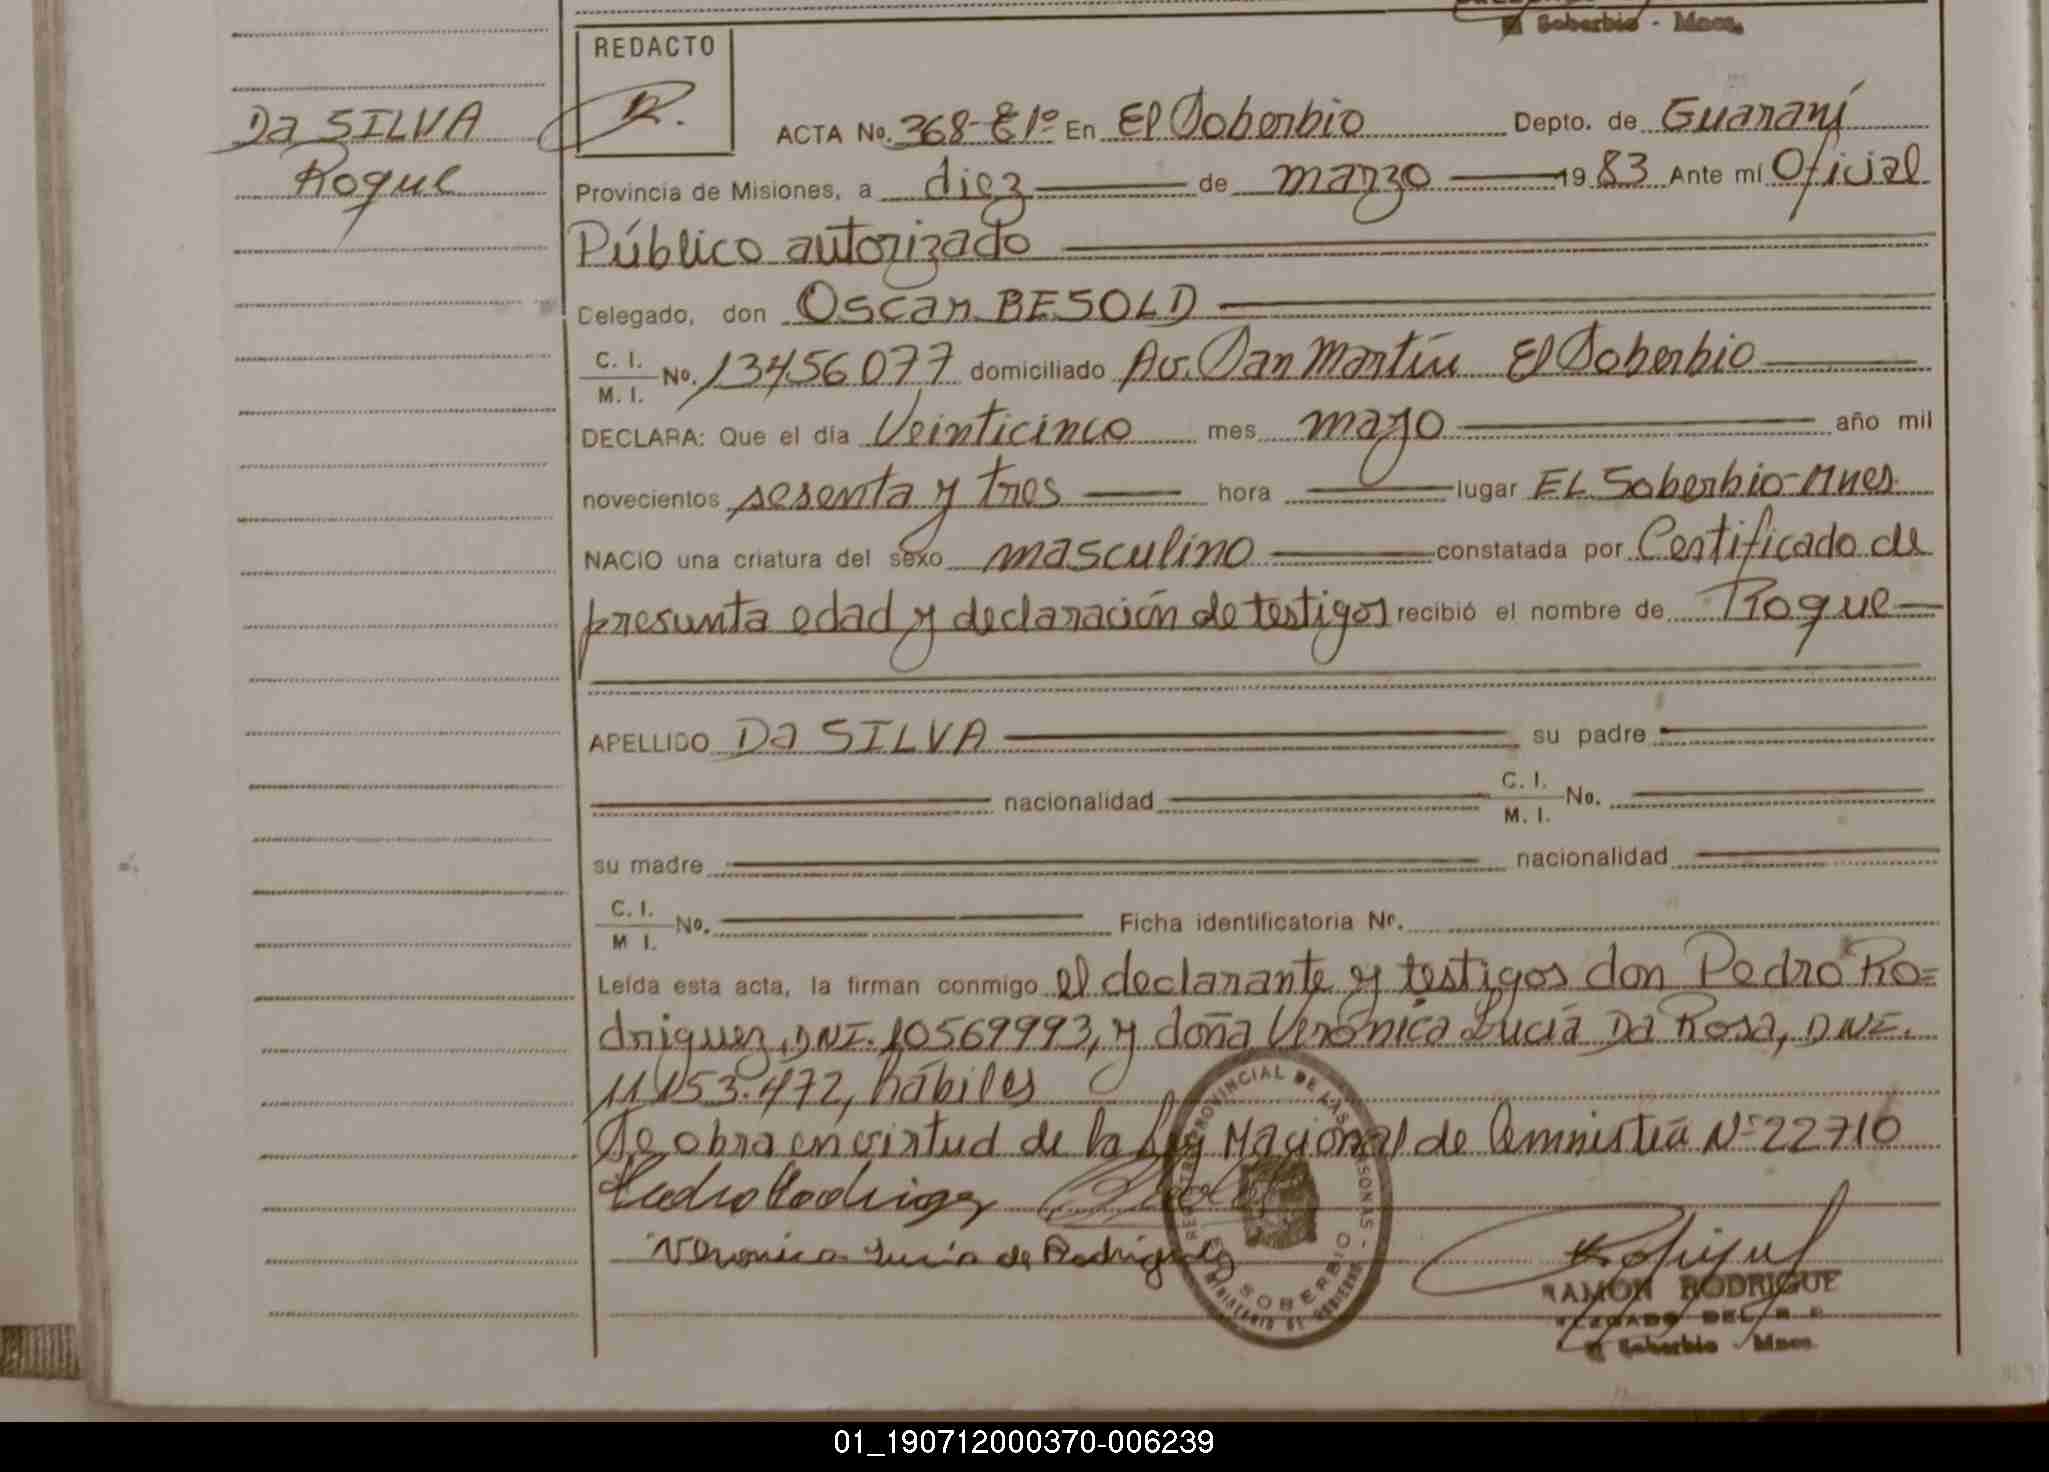 El Soberbio - Mnes.
REDACTO
R.
Da SILVA
Roque
ACTA No. 368-E1º En El Soberbio Depto. de Guaraní
Provincia de Misiones, a diez de marzo 19 83 Ante mí Oficial
Público autorizado
Delegado, don Oscar BESOLD
C. I.
M. I. No. 13456077 domiciliado Av. San Martín El Soberbio
DECLARA: Que el día Veinticinco mes mayo año mil
novecientos sesenta y tres hora lugar EL Soberbio-Mnes
NACIO una criatura del sexo masculino constatada por Certificado de
presunta edad y declaración de testigos recibió el nombre de Roque
APELLIDO Da SILVA su padre
nacionalidad C. I.
M. I. No.
su madre nacionalidad
C. I.
M I. No. Ficha identificatoria Nº.
Leída esta acta, la firman conmigo el declarante y testigos don Pedro Ro=
driguez, DNI. 10569993, y doña Verónica Lucía Da Rosa, DNI.
11153.472, hábiles
Se obra en virtud de la Ley Nacional de Amnistía Nº 22710
Pedro Rodriguez
Veronica Lucia de Rodriguez
REGISTRO PROVINCIAL DE LAS PERSONAS -
SOBERBIO
MINISTERIO DE GOBIERNO
RAMON RODRIGUE
DEL R. P.
El Soberbio - Mnes.
01_190712000370-006239